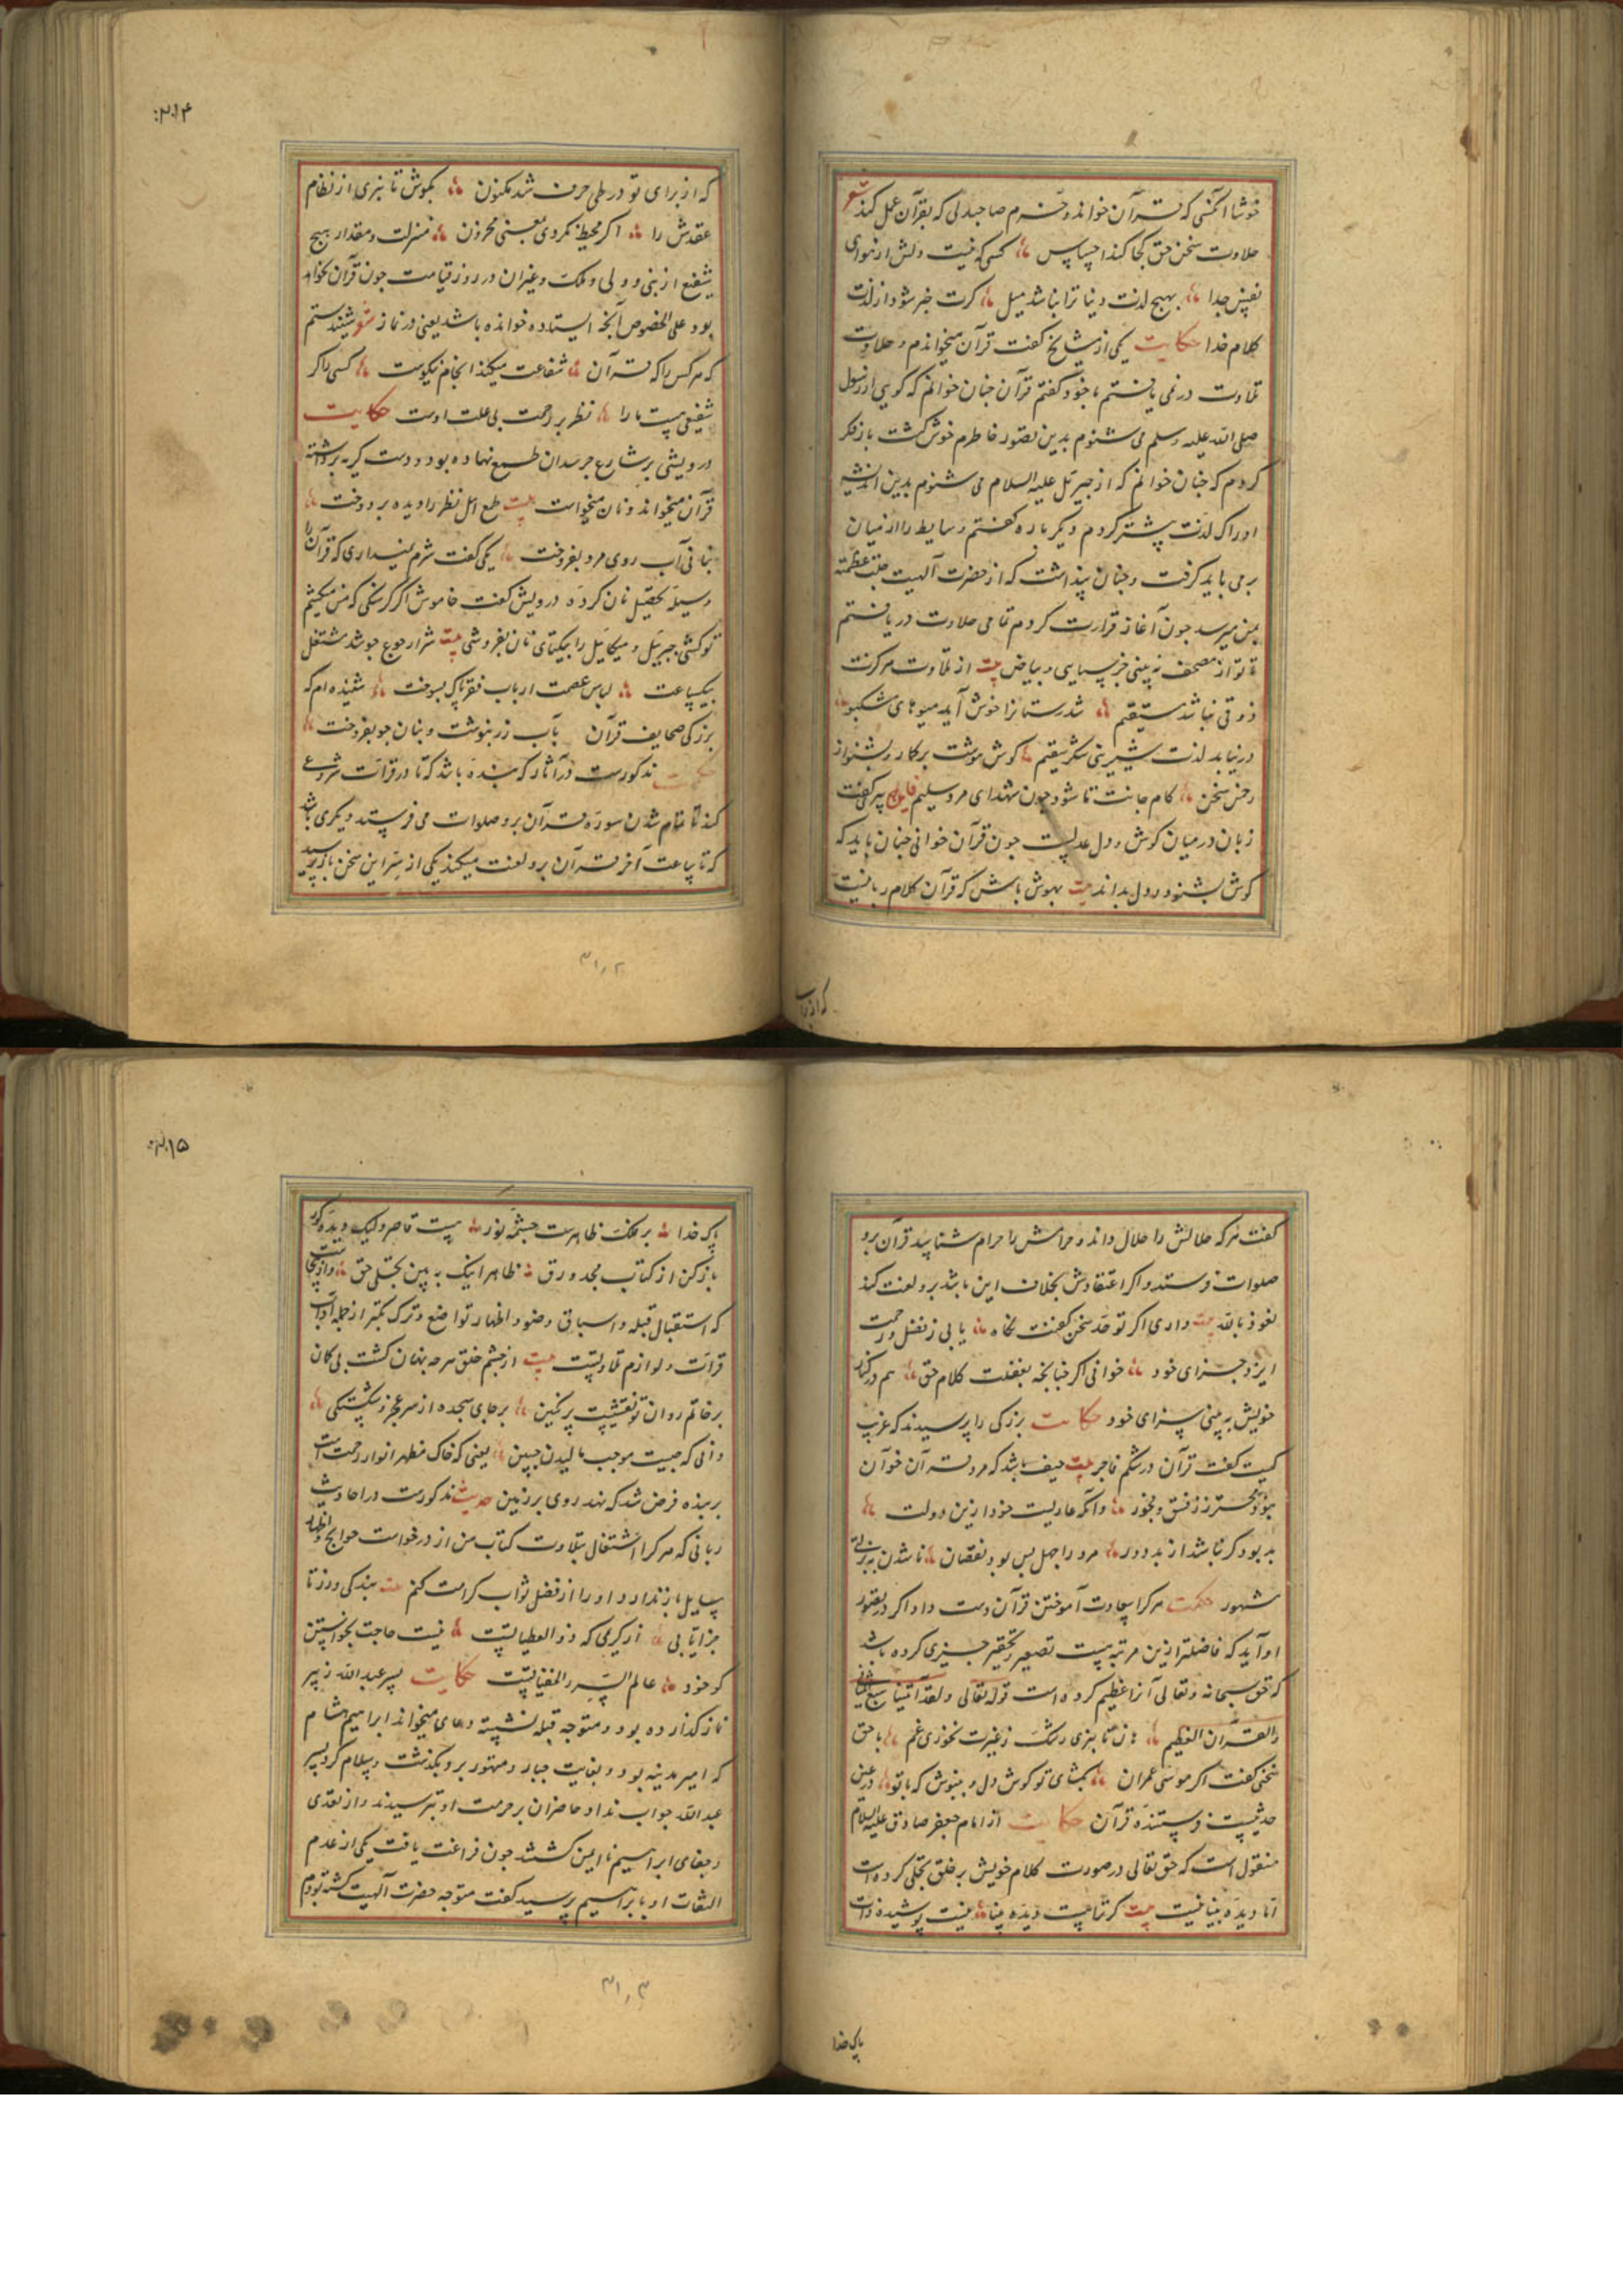 خوشا آنکسی که قرآن خواند و خرم صاحبدلی که بقرآن عمل کند شعر
حلاوت سخن حق کجا کند احساس کسی که نیست دلش از هوای
نفس جدا بهیچ لذت دنیا ترا نباشد میل کرت خبر شود از لذت
کلام خدا حکایت یکی از مشایخ کفت قرآن میخواندم و حلاوت
تلاوت در نمی یافتم با خود کفتم قرآن جنان خوانم که کویی از رسول
صلی الله علیه وسلم می شنوم بدین تصور خاطرم خوش کشت باز فکر
کردم که جنان خوانم که از جبرئیل علیه السلام می شنوم بدین اندیشه
ادراک لذت بیشتر کردم دیکر باره کفتم وسایط را از میان
بر می باید کرفت و جنان پنداشت که از حضرت آلهیت جلت عظمته
بمن میرسد جون آغاز قرارت کردم تمامی حلاوت دریافتم
تا تو از مصحف نه بینی جز سیاهی و بیاض بیت از تلاوت مر کرت
ذوقی نباشد مستقیم
در نیابد لذت شیرینی شکر سقیم کوش هوشت برکار و بشنو از
زبان در میان کوش و دل عدلیست جون قرآن خوانی جنان باید که
کوش بشنود و دل بداند بیت بهوش باش که قرآن کلام ربانیست
که از برای
۲۱۴
که از برای تو در طی حرف شد مکنون بکوش تا نبری از نظام
عقدش را اکر محیط نکردی بمعنی مخزون منزلت و مقدار هیچ
شفیع از نبی و ولی و ملک و غیر آن در روز قیامت جون قرآن نخواهد
بود علی الخصوص آنجه ایستاده خوانده باشد یعنی در نماز شعر شنیدستم
که هر کس را که قرآن شفاعت میکند انجام نیکوست کسی را کر
شفیعی هست ما را نظر بر رحمت بی علت اوست حکایت
درویشی بر شارع جرمدان طمع نهاده بود و دست کریه برداشته
قرآن میخواند و نان میخواست بیت طمع اهل نظر را دیده بر دوخت
بنانی آب روی مرد بفروخت یکی کفت شرم نمیداری که قرآن را
وسیله تحصیل نان کرده درویش کفت خاموش اکر کرسنکی که من میکشم
تو کشی جبرئیل و میکائیل را بیکتای نان بفروشی بیت شرار جوع جو شد مشتعل
بیکساعت لباس عصمت ارباب فقر پاک بسوخت شنیده ام که
بزرکی صحایف قرآن بآب زر بنوشت و بنان جو بفروخت
حکمت مذکورست در آثار که بنده باشد که تا در قرائت شروع
کند تا تمام شدن سوره قرآن برو صلوات می فرستد و دیکری باشد
که تا بساعت آخر قرآن برو لعنت میکند یکی از سر این سخن باز پرسید
۳۱۰۲
کفت هر که حلالش را حلال داند و حرامش را حرام شناسد قرآن برو
صلوات فرستد و اکر اعتقادش بخلاف این باشد برو لعنت کند
نعوذ بالله بیت داری اکر تو حد سخن کفتنت نکاه یابی ز فضل و رحمت
ایزد جزای خود خوانی اکر جنانجه بغفلت کلام حق هم در کنار
خویش به بینی سزای خود حکایت بزرکی را پرسیدند که غریب
کیست کفت قرآن در شکم فاجر بیت حیف باشد که مرد قرآن خوان
وانکه عاریست خود ازین دولت
بد بود کر نباشد از بد دور مرد را جهل بس بود نقصان
مشهور حکمت هر کرا سعادت آموختن قرآن دست داد اکر در تصور
او آید که فاضلتر ازین مرتبه هست تصغیر و تحقیر جیزی کرده باشد
که حق سبحانه وتعالی آنرا عظیم کرده است قوله تعالی ولقد آتیناک سبعا من المثانی
والقرآن العظیم هان تا نبری رشک ز غیرت نخوری غم با حق
سخنی کفت اکر موسی عمران بکشای تو کوش دل و بنیوش که با تو در عین
حدیثست فرستنده قرآن حکایت از امام جعفر صادق علیه السلام
منقول است که حق تعالی در صورت کلام خویش بر خلق تجلی کرده است
اما دیده بینا نیست بیت کر ترا هست دیده بینا نیست پوشیده ذات
پاک خدا
۲۱۵
پاک خدا بر ملک ظاهرست جشمه نور هست قاصر ولیک دیده کور
باز کن از کتاب مجد ورق ظاهرا نیک به بین تجلی حق و از اینجاست
که استقبال قبله و اسباق وضو و اظهار تواضع و ترک تکبر از جمله آداب
قرائت و لوازم تلاوتست بیت از جشم خلق هر جه نهان کشت بی کمان
بر خاتم روان تو نقشیست بر نکین بر جای سجده از سر عجز و شکستکی
دانی که جیست موجب مالیدن جبین یعنی که خاک مظهر انوار رحمت است
بر بنده فرض شد که نهد روی بر زمین حدیث مذکورست در احادیث
ربانی که هر کرا اشتغال بتلاوت کتاب من از درخواست حوایج و اظهار
مسایل باز ندارد او را از فضل ثواب کرامت کنم بیت بندکی ورز تا
جزا یابی از کریمی که ذو العطیاتست نیست حاجت بخواستن
کو خود عالم السر والخفیاتست حکایت پسر عبدالله زبیر
نماز کذارده بود و متوجه قبله نشسته دعای میخواند ابراهیم هشام
که امیر مدینه بود و بغایت جبار و متهور برو بکذشت و سلام کرد پسر
عبدالله جواب نداد حاضران بر حرمت او بترسیدند و از تعدی
و جفای ابراهیم نا ایمن کشتند جون فراغت یافت یکی از عدم
التفات او با ابراهیم پرسید کفت متوجه حضرت آلهیت کشته بودم
۳۱۰۳